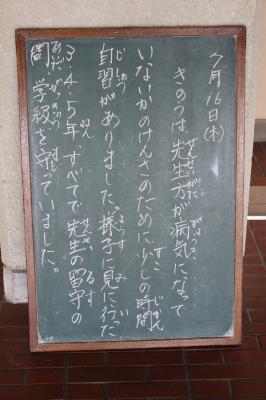 7月16日(木)
きのうは、先生方が病気になって
いないかのけんさのために少しの時間
自習がありました。様子に見に行った
3・4・5年、すべてで先生の留守の
間、学級を守っていました。